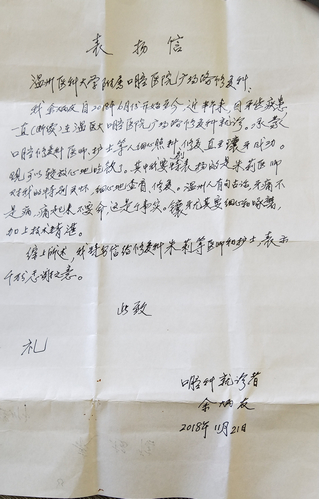 表扬信
温州医科大学附属口腔医院广场路修复科:
我余炳友自2018年6月15开始至今,近半年来,因牙齿疾患
一直(断续)在温医大口腔医院广场路修复科就诊。承蒙
口腔修复科医师、护士等人细心照料,修复直至镶牙成功。
现可以较放心地吃饭了。其中我要特别表扬的是朱莉医师
对我的特别关怀,细心地查看,修复。温州人有句古话,牙痛不
是病,痛起来不要命,这是个事实。镶牙尤其要细心和啄磨,
加上技术精湛。
综上所述,我特写信给修复科朱莉等医师和护士,表示
千于感谢之意。
此致
礼
口腔科就诊者
余炳友
2018年11月21日